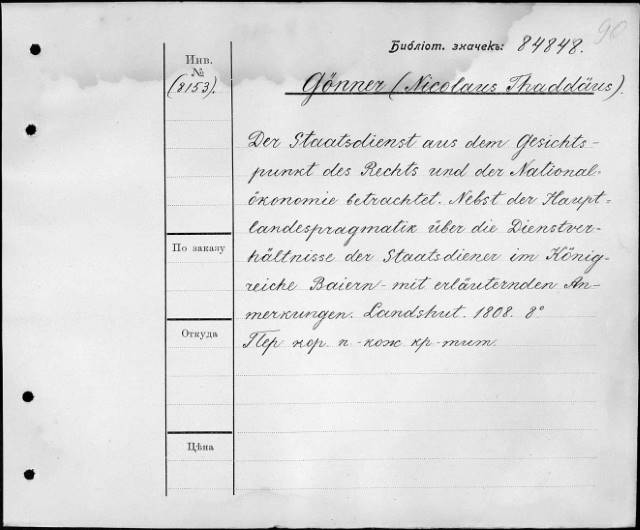 90
Библіот. значекъ: 84848.
Инв.
№
(2153).
Gönner (Nicolaus Thaddäus).
Der Staatsdienst aus dem Gesichts-
punkt des Rechts und der National-
ökonomie betrachtet. Nebst der Haupt-
landespragmatik über die Dienstver-
hältnisse der Staatsdiener im König-
reiche Baiern - mit erläuternden An-
merkungen. Landshut. 1808. 8°
Пер кор. п - кож кр - тит.
По заказу
Откуда
Цѣна